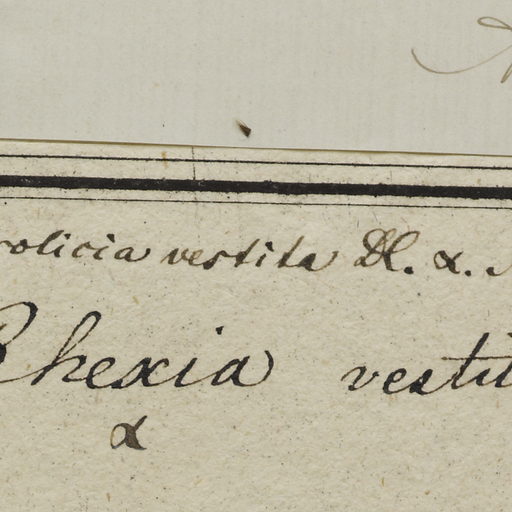 rolicia vestita Dl. α.
Rhexia vestit
α